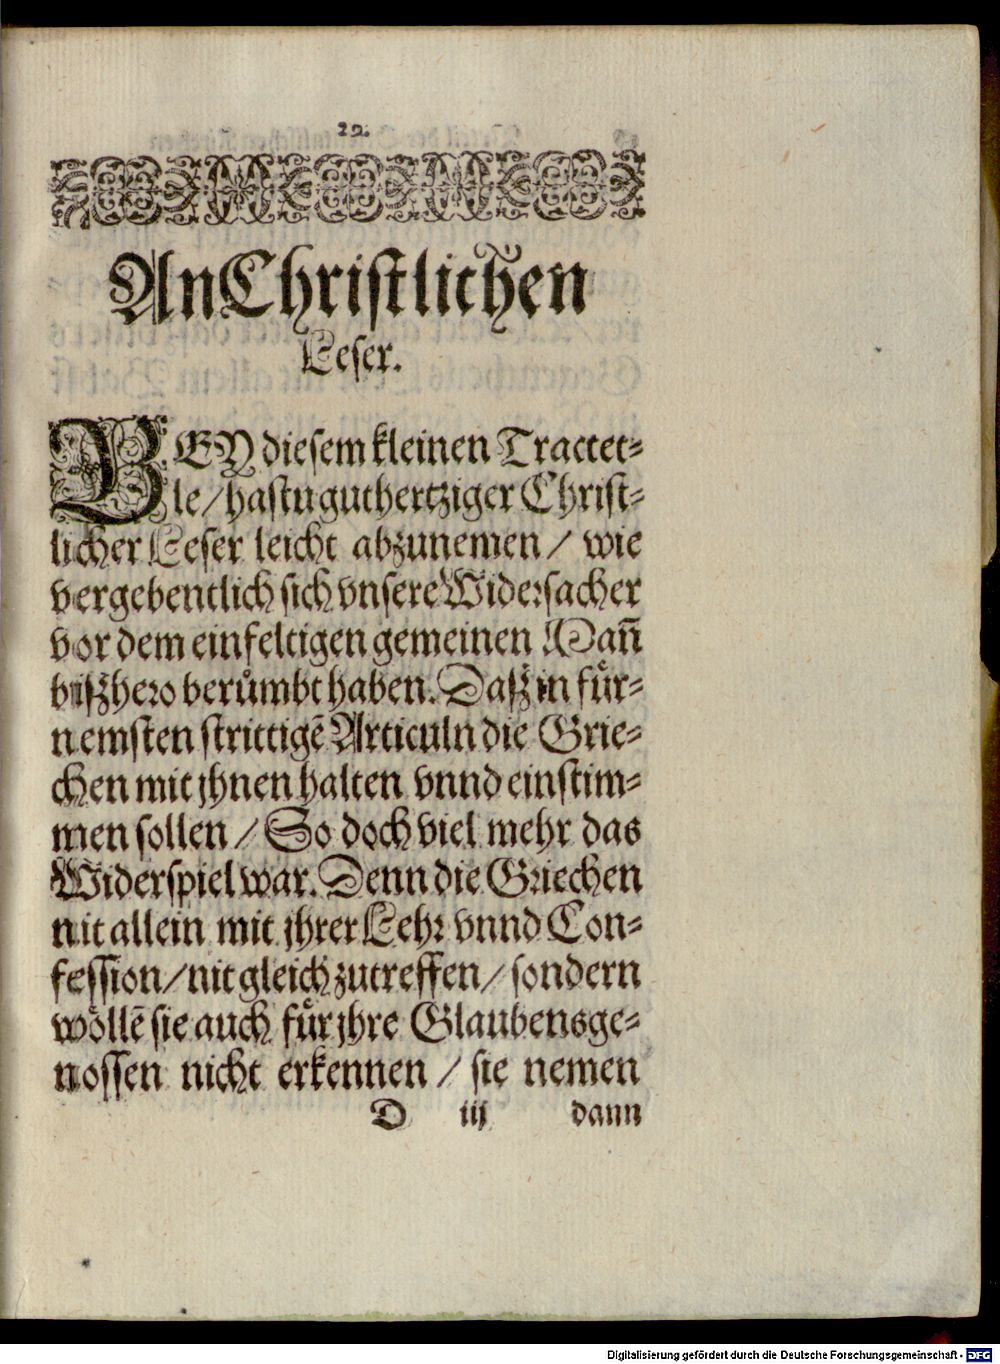 29.
An Christlichen
Leser.
BEY diesem kleinen Tractet-
le / hastu guthertziger Christ-
licher Leser leicht abzunemen / wie
vergebentlich sich vnsere Widersacher
vor dem einfeltigen gemeinen Mañ
bißhero berůmbt haben. Daß in fuͤr-
nemsten strittigē Articuln die Grie-
chen mit jhnen halten vnnd einstim-
men sollen / So doch viel mehr das
Widerspiel war. Denn die Griechen
nit allein mit jhrer Lehr vnnd Con-
fession / nit gleich zutreffen / sondern
woͤllē sie auch fuͤr jhre Glaubensge-
nossen nicht erkennen / sie nemen
D iij dann
Digitalisierung gefördert durch die Deutsche Forschungsgemeinschaft - DFG